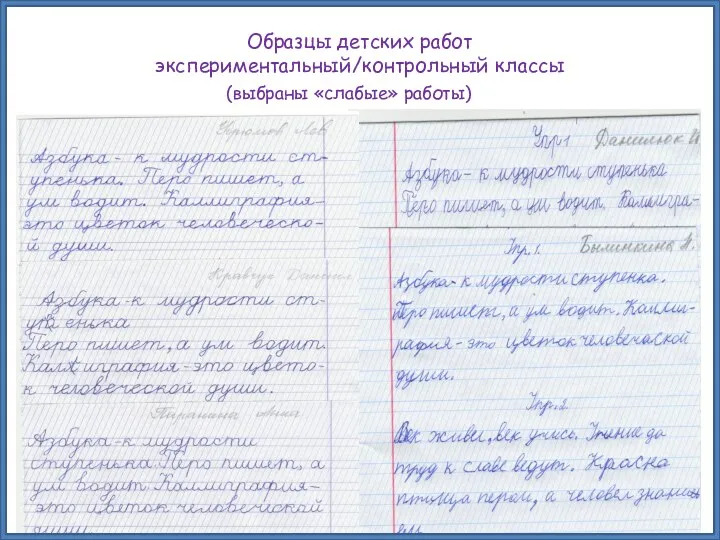 Образцы детских работ
экспериментальный/контрольный классы
(выбраны «слабые» работы)
Лев
Азбука - к мудрости ст-
упенька. Перо пишет, а
ум водит. Каллиграфия-
это цветок человеческо-
й души.
Кравчук Даниил
Азбука - к мудрости ст-
упенька
Перо пишет, а ум водит.
Каллиграфия - это цвето-
к человеческой души.
Анна
Азбука - к мудрости
ступенька. Перо пишет, а
ум водит. Каллиграфия-
это цветок человеческой
души.
Упр 1 Данилюк И
Азбука - к мудрости ступенька
Перо пишет, а ум водит. Каллигра-
Упр. 1. Былинкина Н.
Азбука - к мудрости ступенка.
Перо пишет, а ум водит. Калли-
графия - это цветок человеческой
души.
Упр. 2
Век живи, век учись. Учение да
труд к славе ведут. Красна
птица пером, а человек знани-
ем